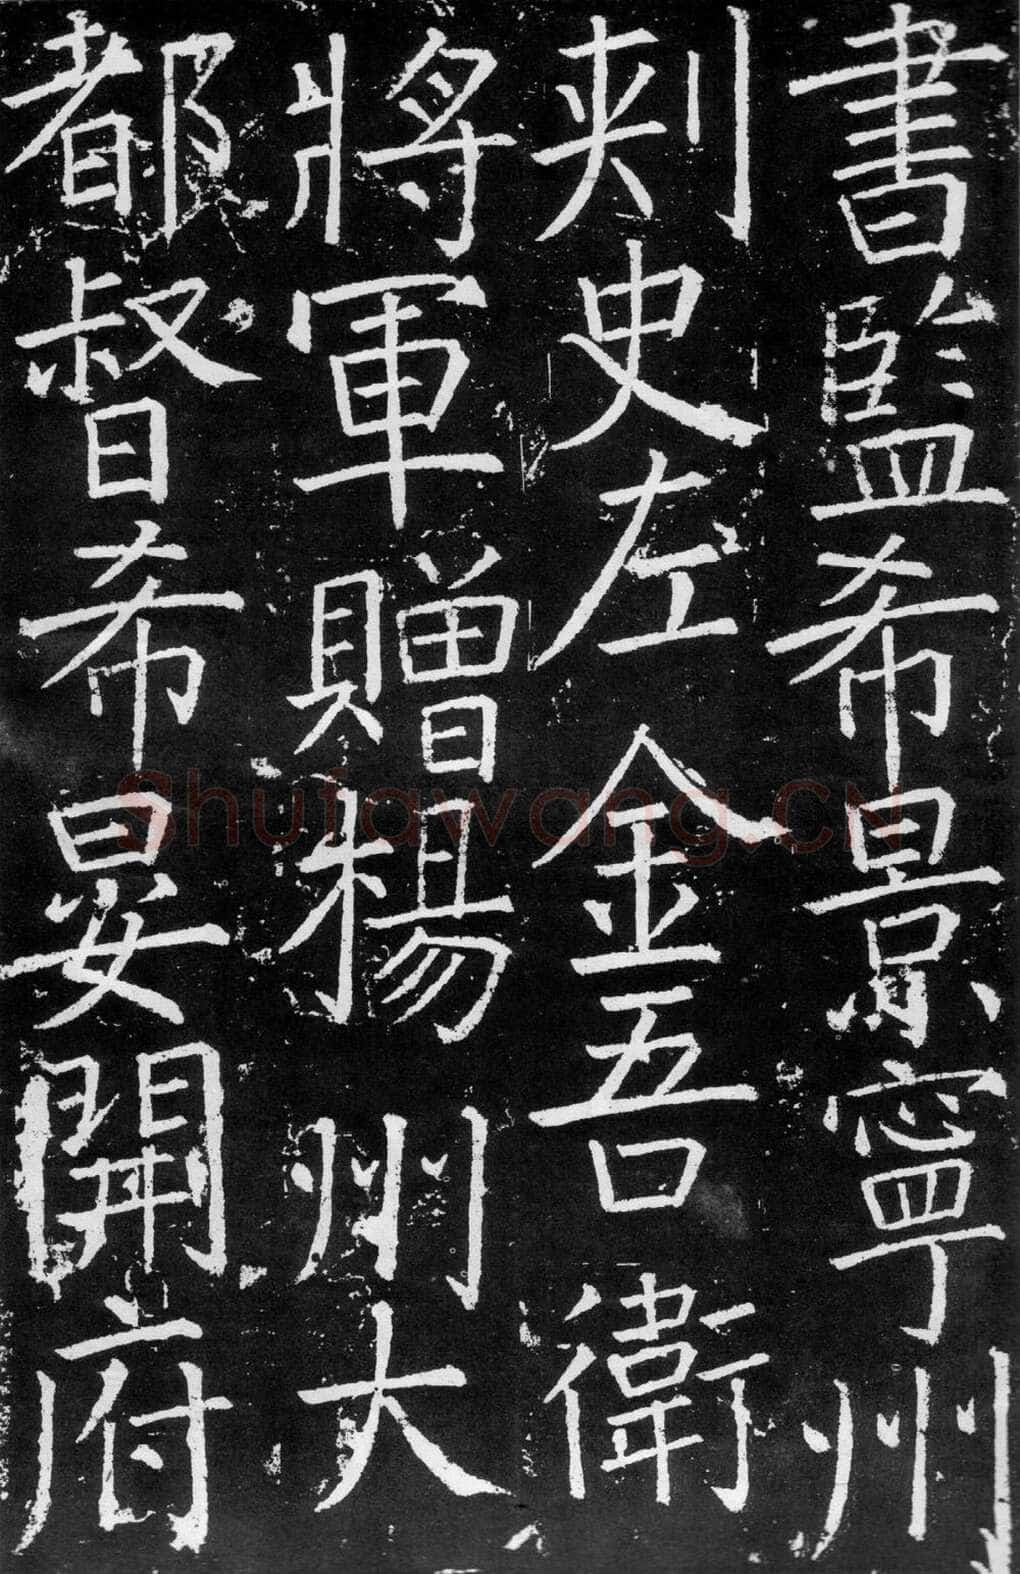 書監希景寧州
刾史左金吾衛
將軍贈楊州大
都督希晏開府
Shufawang.CN